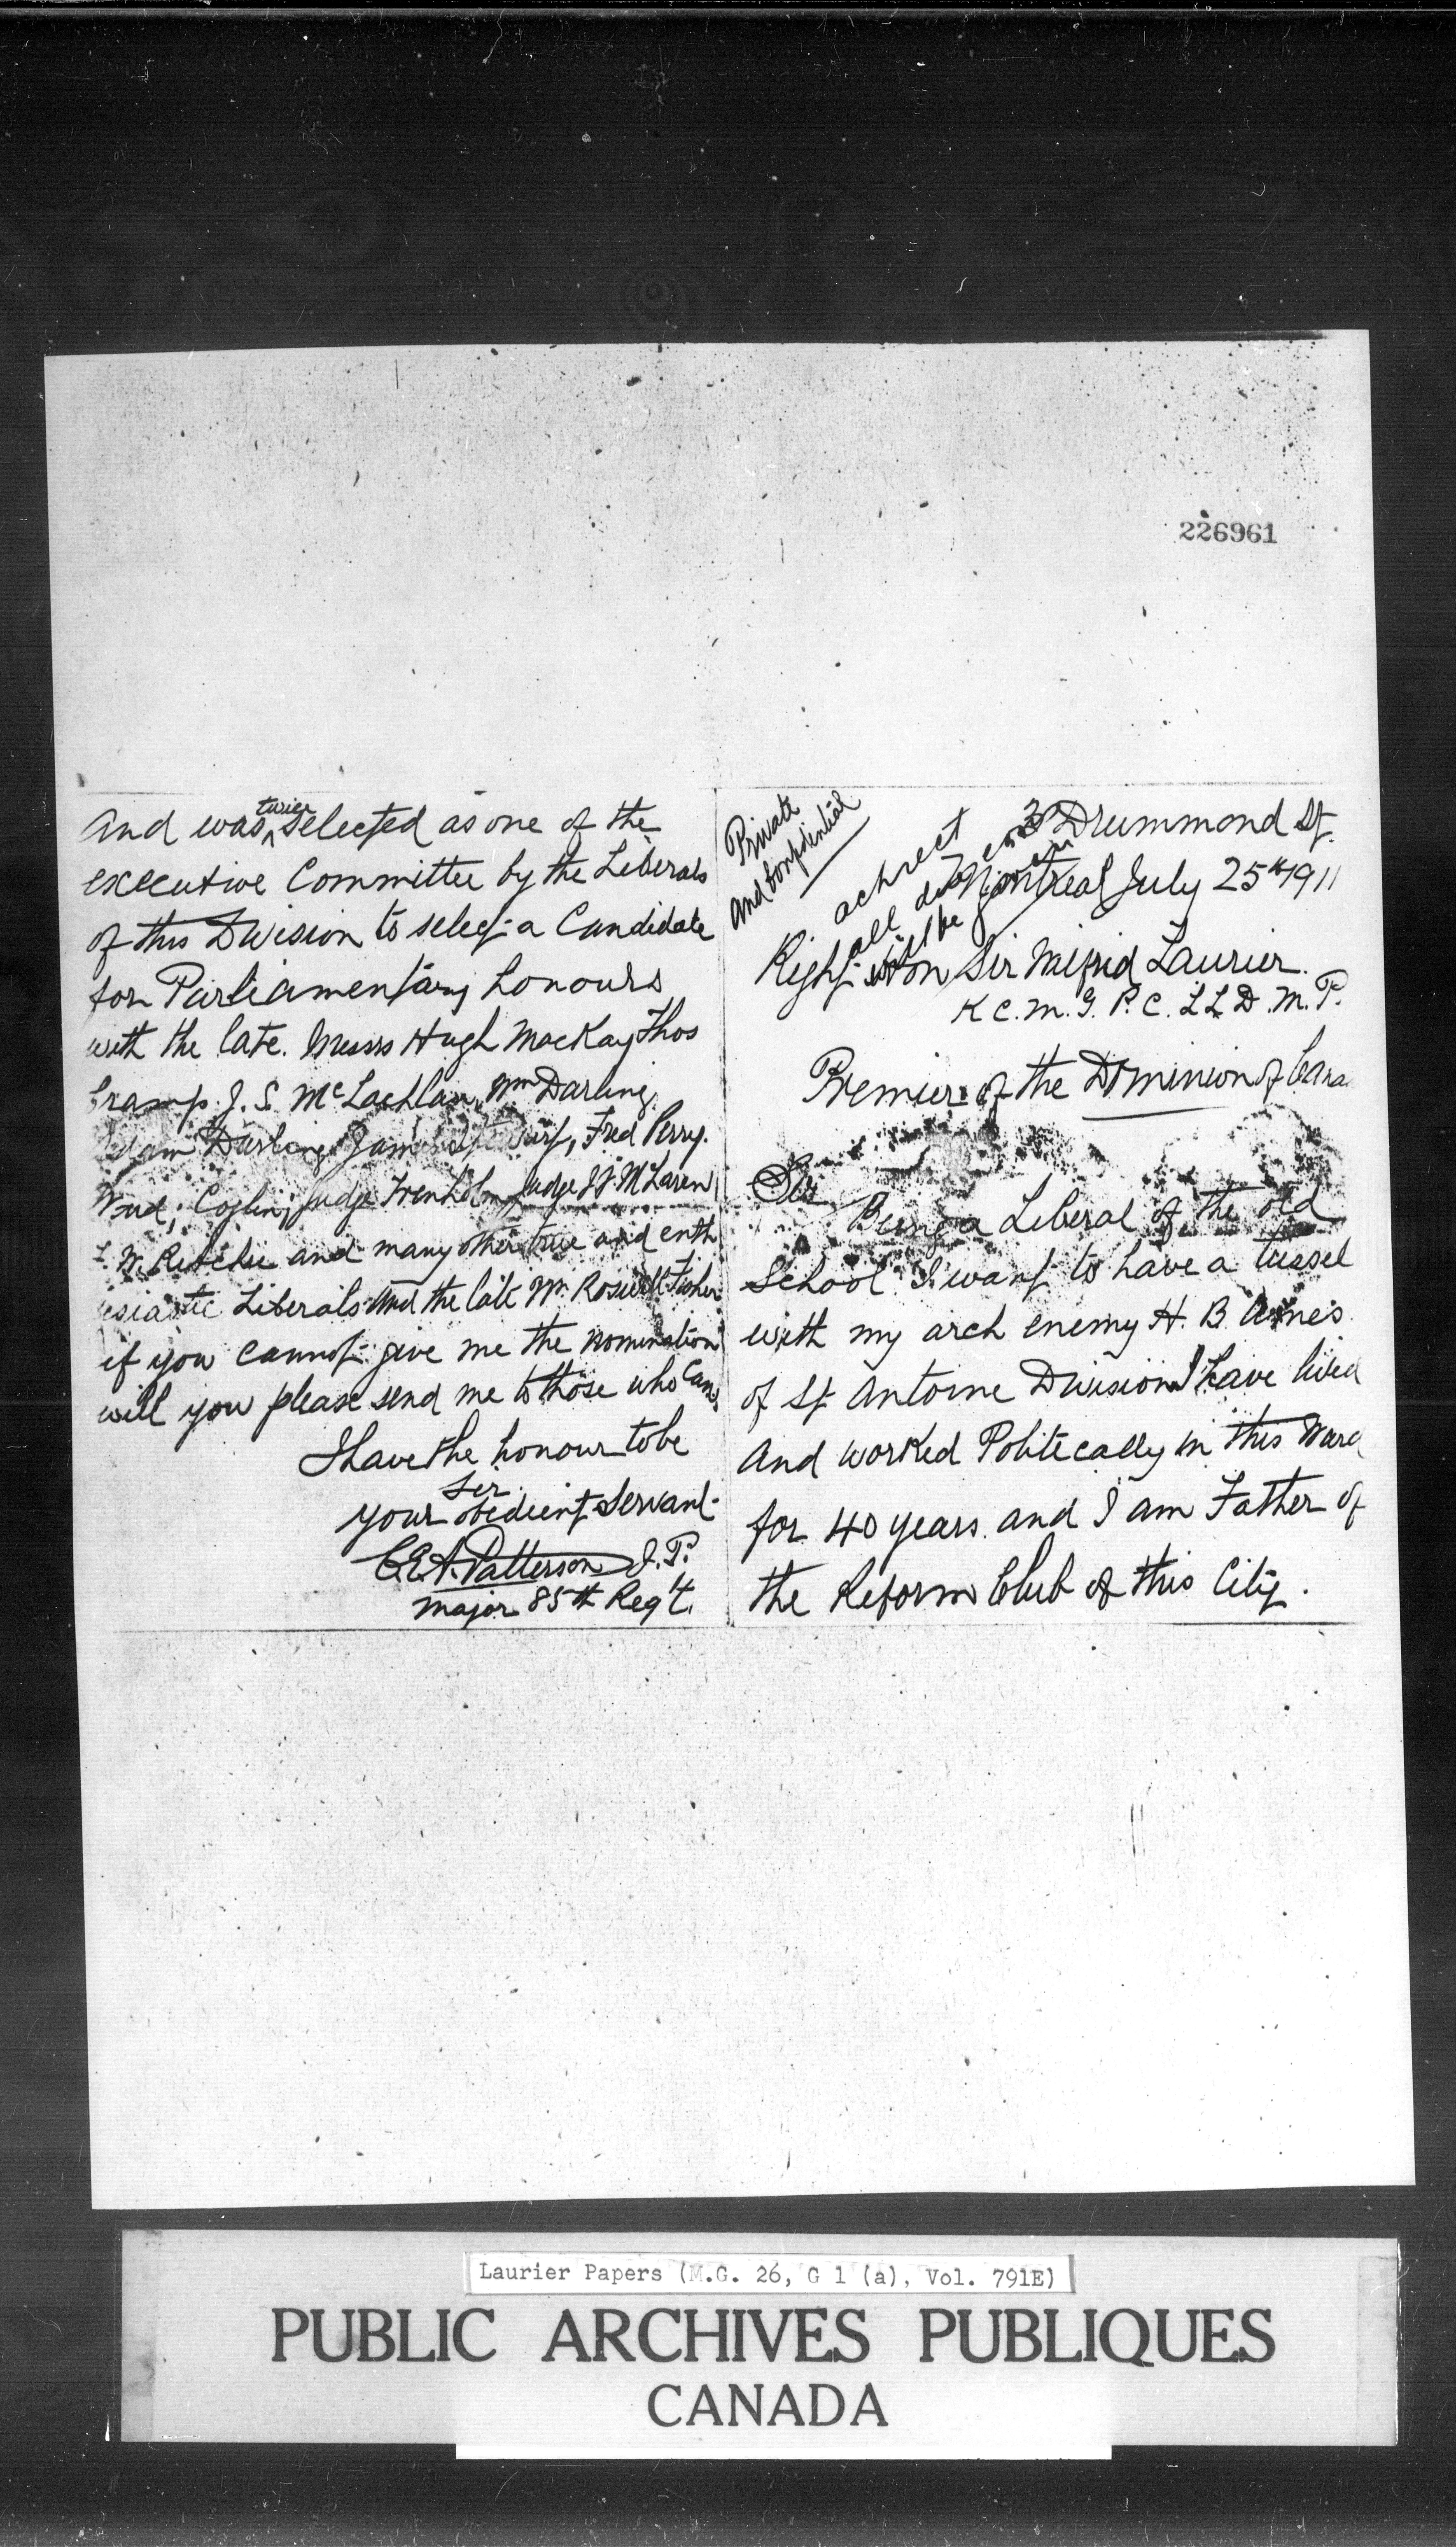 226961
Private
and Confidential
3 Drummond St.
Montreal July 25th 1911
achrect
all
will be
Right Hon Sir Wilfrid Laurier.
K C. M. G. P. C. L L D. M. P.
Premier of the Dominion of Cana
Sir
Being a Liberal of the old
School I want to have a tussel
with my arch enemy H. B. Ames
of St Antoine Division I have lived
And worked Politecally in this Ward
for 40 years and I am Father of
the Reform Club of this City.
And was twice selected as one of the
executive Committee by the Liberals
of this Division to select a Candidate
for Parliamentary honours
with the late. Messrs Hugh MacKay Thos
Cramp. J. S. McLachlan, Wm Darling,
Darling, Fred Perry.
Coglin, Judge Trenholm, Judge J J McLaren
W. Ritchie and many other true and enth
usiastic Liberals And the late Mr. Roswell Fisher
if you cannot give me the nomination
will you please send me to those who can,
I have the honour to be
Sir.
your obedient Servant
C. E. A. Patterson J. P.
Major 85th Reg't.
Laurier Papers (M.G. 26, G 1 (a), Vol. 791E)
PUBLIC ARCHIVES PUBLIQUES
CANADA